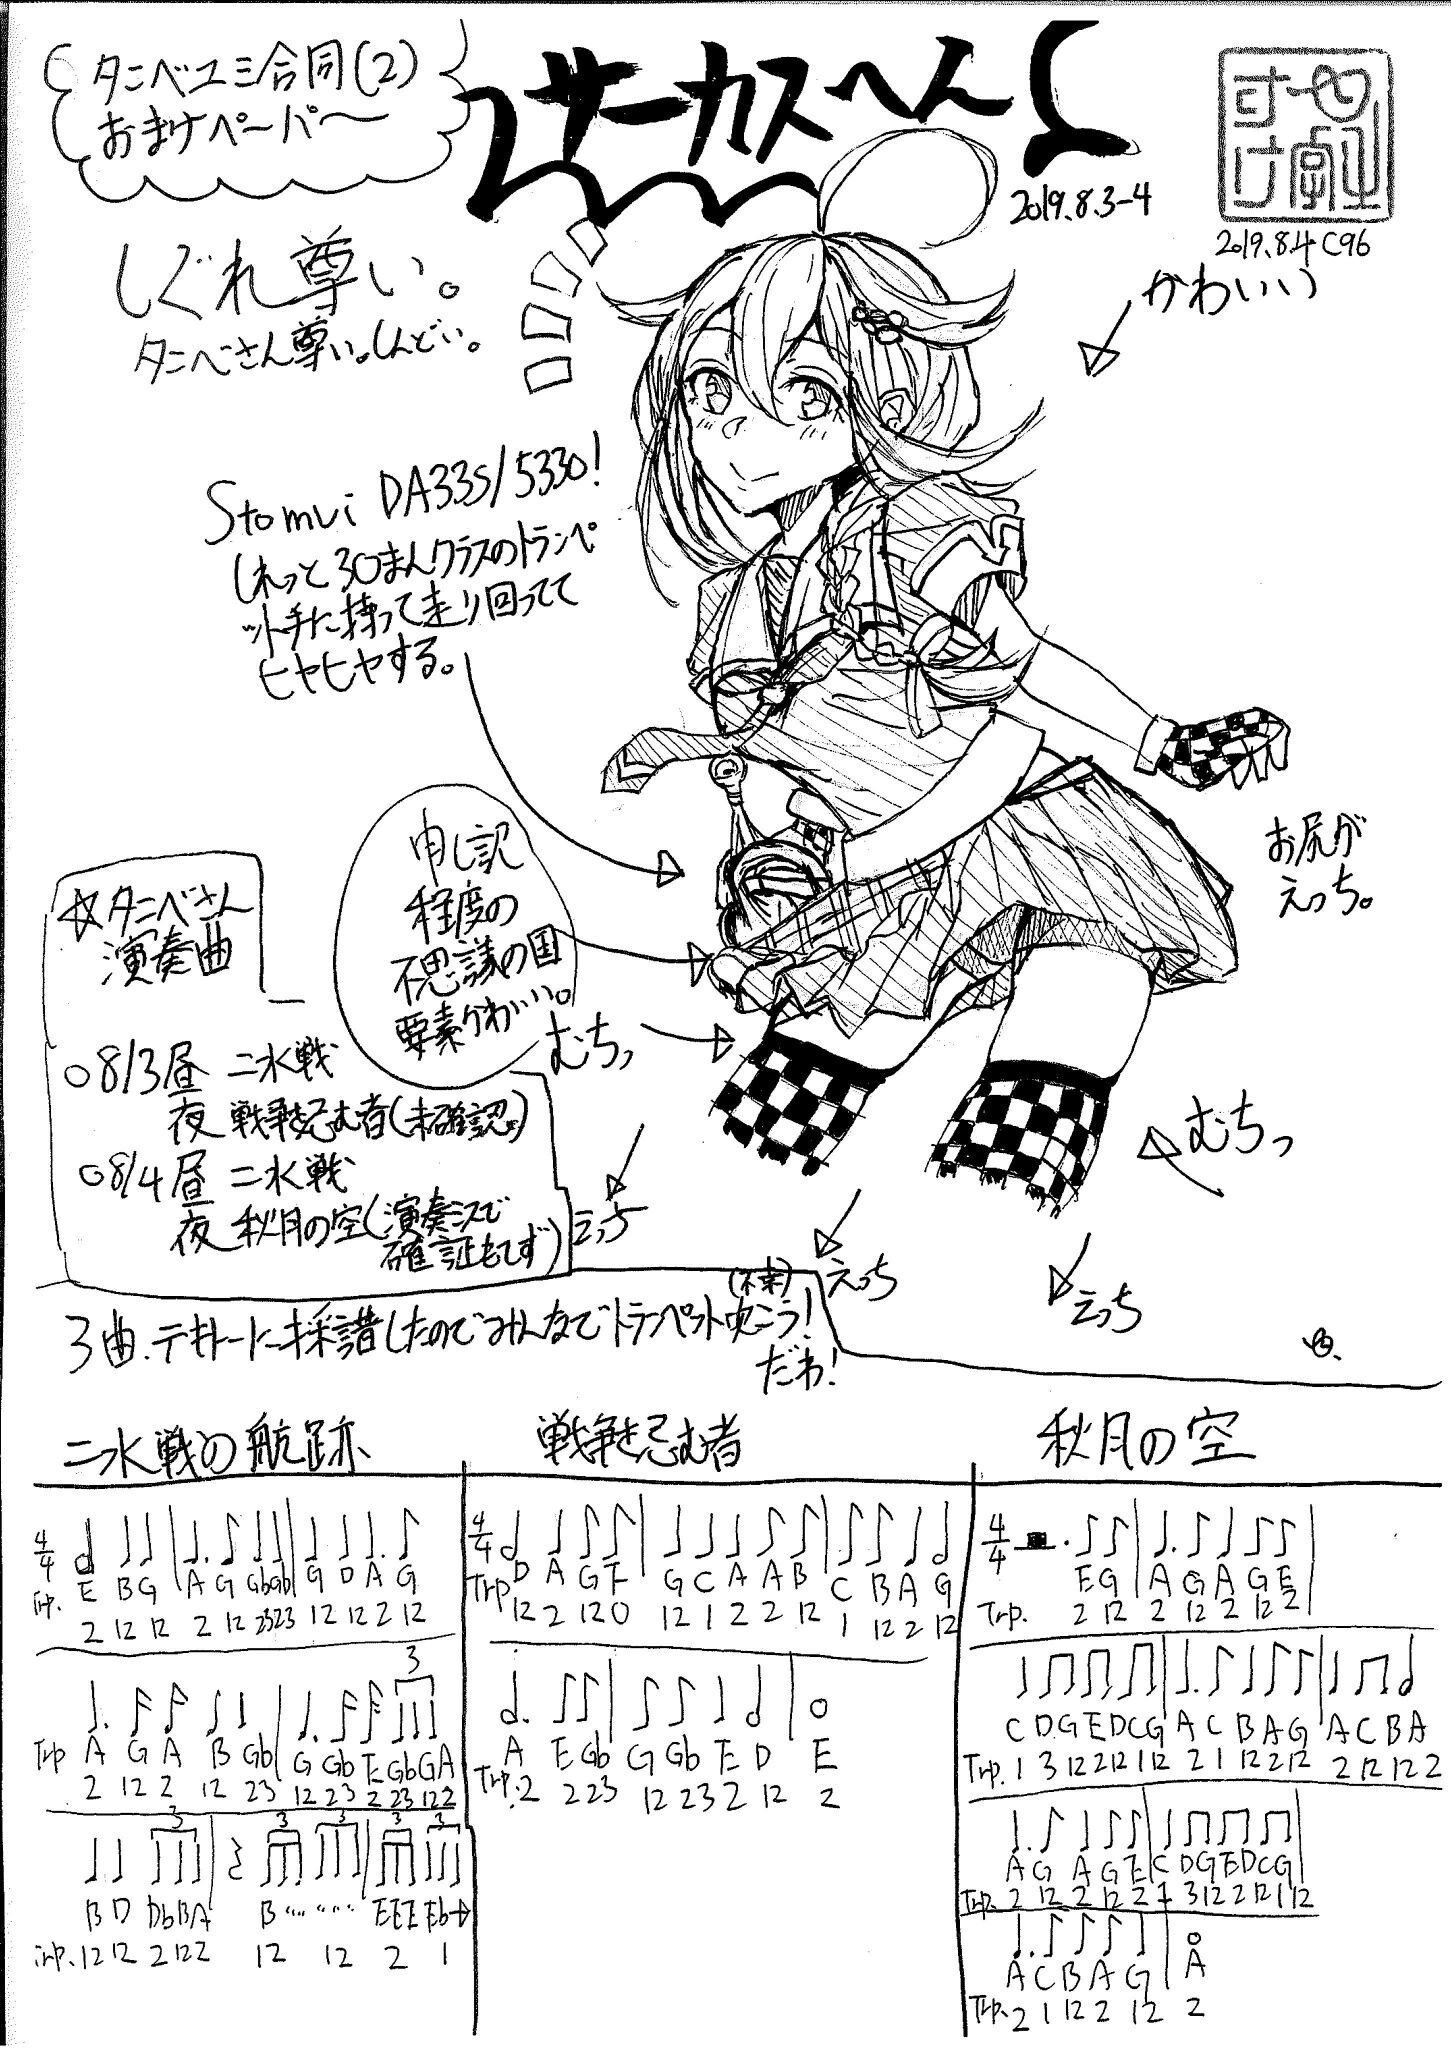 タニベユミ合同(2)
おまけペーパ〜
サーカスへん
2019.8.3-4
2019.8.4 C96
しぐれ尊い。
タニベさん尊い。しんどい。
かわいい
Stomvi DA335/5330!
しれっと30まんクラスのトランペ
ット手に持って走り回ってて
ヒヤヒヤする。
お尻が
えっち。
申し訳
程度の
不思議の国
要素かわいい。
むちっ
むちっ
☆タニベさん
演奏曲
○8/3昼 二水戦
夜 戦争を忌む者(未確認)
○8/4昼 二水戦
夜 秋月の空(演奏ミスで
確証もてず)
えっち
えっち
えっち
3曲、テキトーに採譜したのでみんなでトランペット吹こう!
だわ!
二水戦の航跡
4/4
E B G A G Gb Gb G D A G
Trp. 2 12 12 2 12 23 23 12 12 2 12
3
A G A B Gb G Gb E Gb G A
Trp 2 12 2 12 23 12 23 2 23 12 2
3 3 3 3 3
B D Db B A B E E E Eb→
Trp. 12 12 2 12 2 12 12 2 1
戦争を忌む者
4/4
D A G F G C A A B C B A G
Trp. 12 2 12 0 12 1 2 2 12 1 12 2 12
A E Gb G Gb E D E
Trp. 2 2 23 12 23 2 12 2
秋月の空
4/4
E G A G A G E
Trp. 2 12 2 12 2 12 2
C D G E D C G A C B A G A C B A
Trp. 1 3 12 2 12 1 12 2 1 12 2 12 2 12 12 2
A G A G E C D G E D C G
Trp. 2 12 2 12 2 1 3 12 2 12 1 12
A C B A G A
Trp. 2 1 12 2 12 2